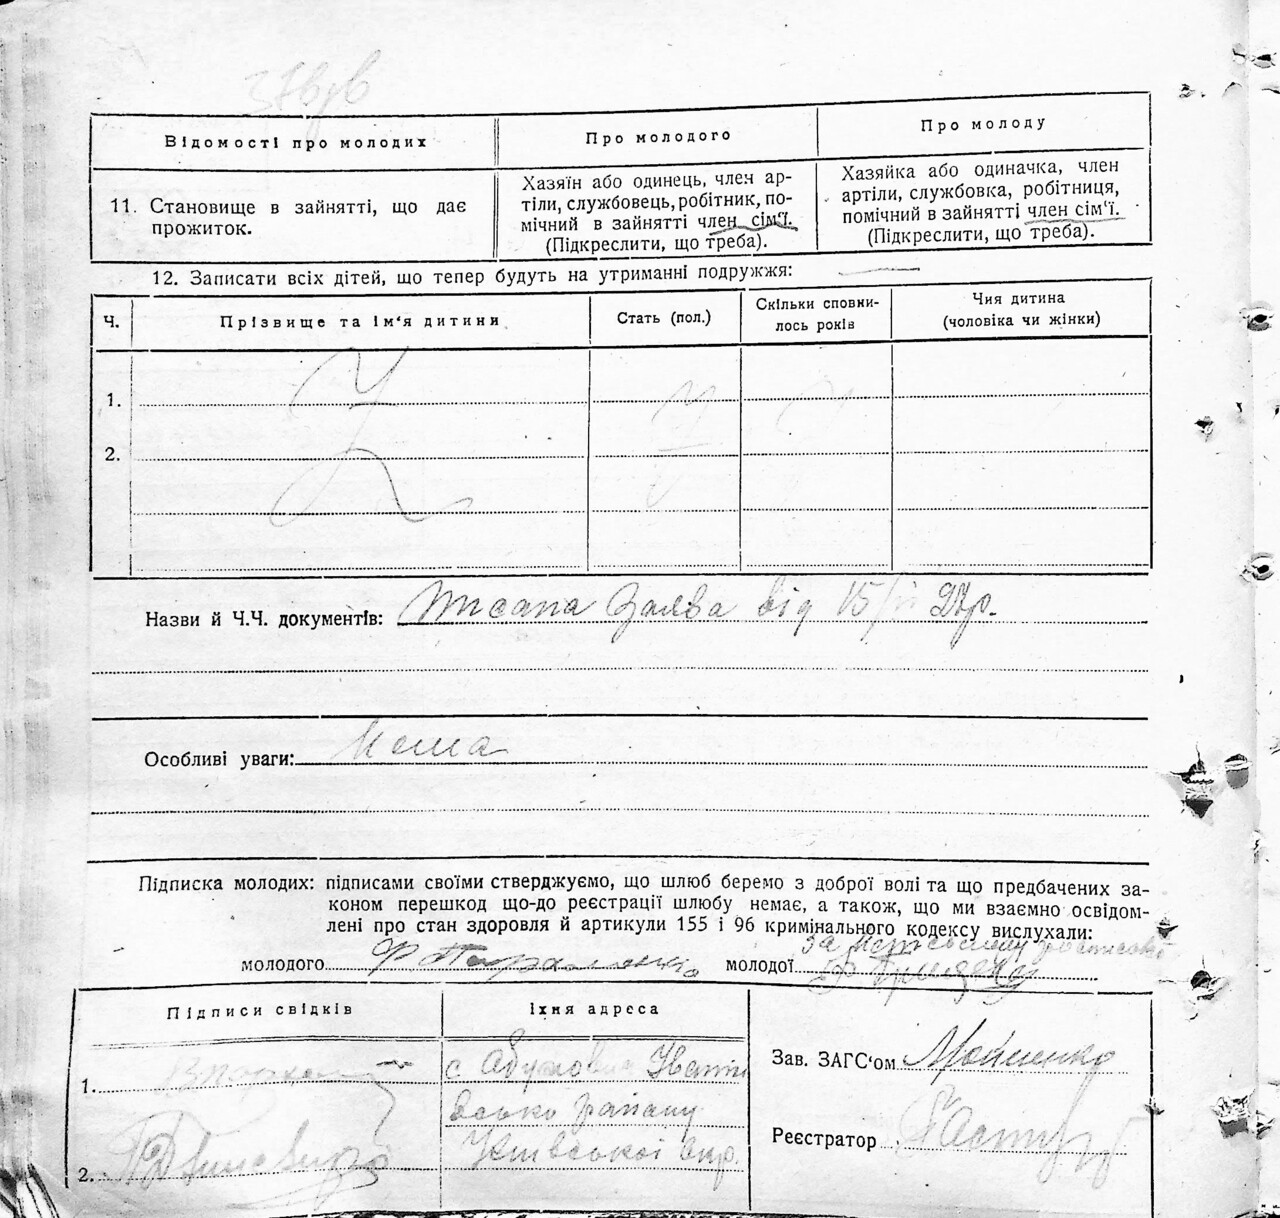 Відомості про молодих
Про молодого
Про молоду
11. Становище в зайнятті, що дає
прожиток.
Хазяїн або одинець, член ар-
тіли, службовець, робітник, по-
мічний в зайнятті член сім'ї.
(Підкреслити, що треба).
Хазяйка або одиначка, член
артіли, службовка, робітниця,
помічний в зайнятті член сім'ї.
(Підкреслити, що треба).
12. Записати всіх дітей, що тепер будуть на утриманні подружжя: —
Ч.
Прізвище та ім'я дитини
Стать (пол.)
Скільки сповни-
лось років
Чия дитина
(чоловіка чи жінки)
1.
2.
Назви й Ч.Ч. документів: Писана Заява від 15/
Особливі уваги: Нема
Підписка молодих: підписами своїми стверджуємо, що шлюб беремо з доброї волі та що предбачених за-
коном перешкод що-до реєстрації шлюбу немає, а також, що ми взаємно освідом-
лені про стан здоровля й артикули 155 і 96 кримінального кодексу вислухали:
за
молодого Ф
молодої Ф Грищенко
Підписи свідків
Їхня адреса
1.
с
району
2.
Київської окр.
Зав. ЗАГС'ом
Реєстратор